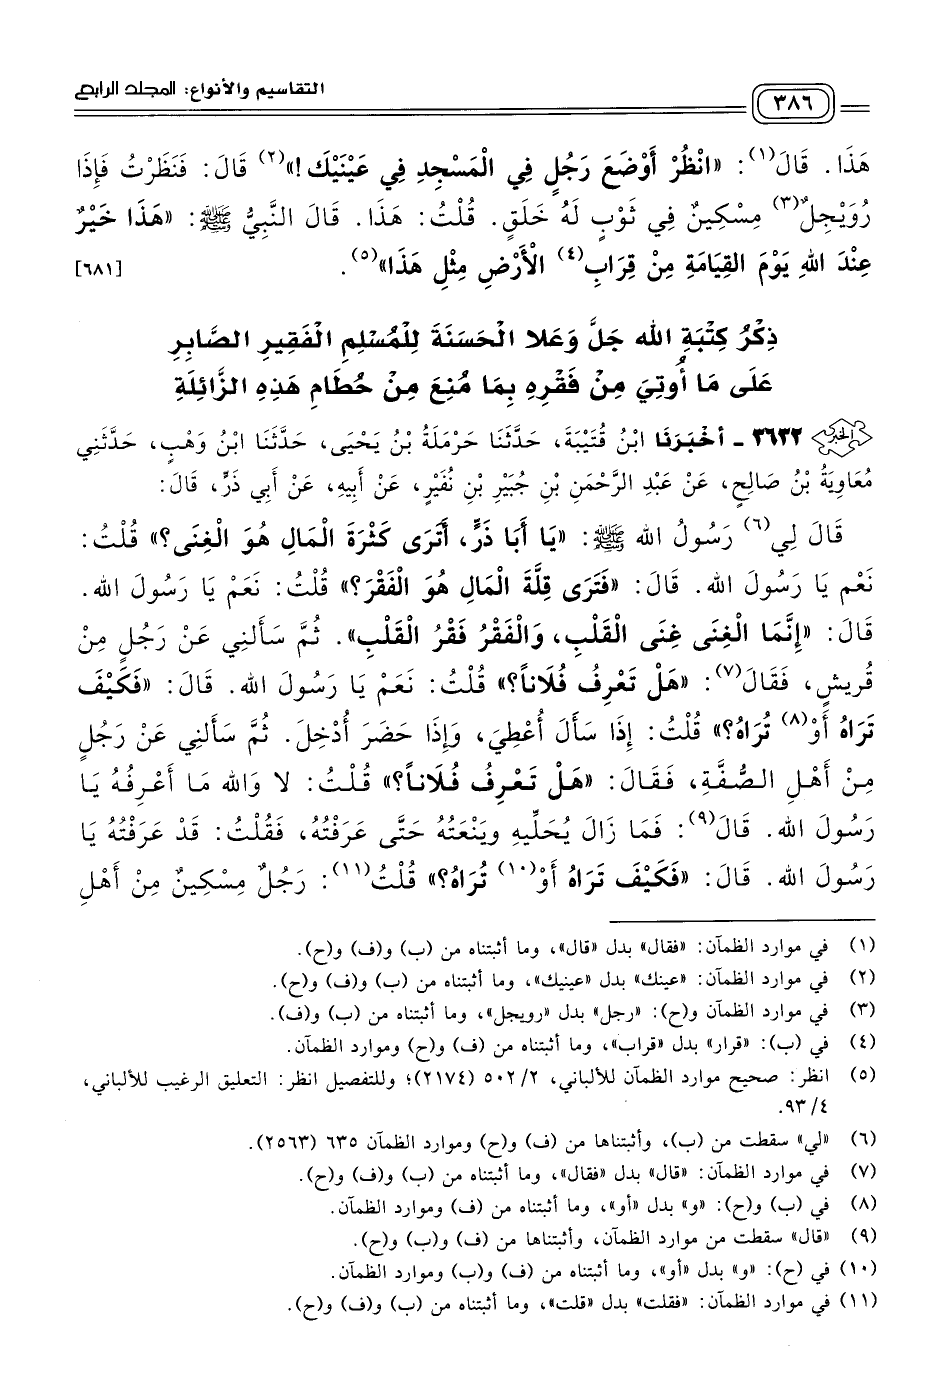 التقاسيم والأنواع: المجلد الرابع
٣٨٦
هَذَا. قَالَ(١): «انْظُرْ أَوْضَعَ رَجُلٍ فِي الْمَسْجِدِ فِي عَيْنَيْكَ!»(٢) قَالَ: فَنَظَرْتُ فَإِذَا
رُوَيْجِلٌ(٣) مِسْكِينٌ فِي ثَوْبٍ لَهُ خَلَقٍ. قُلْتُ: هَذَا. قَالَ النَّبِيُّ ﷺ: «هَذَا خَيْرٌ
عِنْدَ اللهِ يَوْمَ القِيَامَةِ مِنْ قِرَابِ(٤) الْأَرْضِ مِثْلِ هَذَا»(٥). [٦٨١]
ذِكْرُ كِتْبَةِ اللهِ جَلَّ وَعَلا الْحَسَنَةَ لِلْمُسْلِمِ الْفَقِيرِ الصَّابِرِ
عَلَى مَا أُوتِيَ مِنْ فَقْرِهِ بِمَا مُنِعَ مِنْ حُطَامِ هَذِهِ الزَّائِلَةِ
الخبر ٣٦٣٢ - أخْبَرَنَا ابْنُ قُتَيْبَةَ، حَدَّثَنَا حَرْمَلَةُ بْنُ يَحْيَى، حَدَّثَنَا ابْنُ وَهْبٍ، حَدَّثَنِي
مُعَاوِيَةُ بْنُ صَالِحٍ، عَنْ عَبْدِ الرَّحْمَنِ بْنِ جُبَيْرِ بْنِ نُفَيْرٍ، عَنْ أَبِيهِ، عَنْ أَبِي ذَرٍّ، قَالَ:
قَالَ لِي(٦) رَسُولُ اللهِ ﷺ: «يَا أَبَا ذَرٍّ، أَتَرَى كَثْرَةَ الْمَالِ هُوَ الْغِنَى؟» قُلْتُ:
نَعَمْ يَا رَسُولَ اللهِ. قَالَ: «فَتَرَى قِلَّةَ الْمَالِ هُوَ الْفَقْرَ؟» قُلْتُ: نَعَمْ يَا رَسُولَ اللهِ.
قَالَ: «إِنَّمَا الْغِنَى غِنَى الْقَلْبِ، وَالْفَقْرُ فَقْرُ الْقَلْبِ». ثُمَّ سَأَلَنِي عَنْ رَجُلٍ مِنْ
قُرِيشٍ، فَقَالَ(٧): «هَلْ تَعْرِفُ فُلَاناً؟» قُلْتُ: نَعَمْ يَا رَسُولَ اللهِ. قَالَ: «فَكَيْفَ
تَرَاهُ أَوْ(٨) تُرَاهُ؟» قُلْتُ: إِذَا سَأَلَ أُعْطِيَ، وَإِذَا حَضَرَ أُدْخِلَ. ثُمَّ سَأَلَنِي عَنْ رَجُلٍ
مِنْ أَهْلِ الصُّفَّةِ، فَقَالَ: «هَلْ تَعْرِفُ فُلَاناً؟» قُلْتُ: لا وَاللهِ مَا أَعْرِفُهُ يَا
رَسُولَ اللهِ. قَالَ(٩): فَمَا زَالَ يُحَلِّيهِ وَيَنْعَتُهُ حَتَّى عَرَفْتُهُ، فَقُلْتُ: قَدْ عَرَفْتُهُ يَا
رَسُولَ اللهِ. قَالَ: «فَكَيْفَ تَرَاهُ أَوْ(١٠) تُرَاهُ؟» قُلْتُ(١١): رَجُلٌ مِسْكِينٌ مِنْ أَهْلِ
(١) في موارد الظمآن: «فقال» بدل «قال»، وما أثبتناه من (ب) و(ف) و(ح).
(٢) في موارد الظمآن: «عينك» بدل «عينيك»، وما أثبتناه من (ب) و(ف) و(ح).
(٣) في موارد الظمآن و(ح): «رجل» بدل «رويجل»، وما أثبتناه من (ب) و(ف).
(٤) في (ب): «قرار» بدل «قراب»، وما أثبتناه من (ف) و(ح) وموارد الظمآن.
(٥) انظر: صحيح موارد الظمآن للألباني، ٥٠٢/٢ (٢١٧٤)؛ وللتفصيل انظر: التعليق الرغيب للألباني،
٩٣/٤.
(٦) «لي» سقطت من (ب)، وأثبتناها من (ف) و(ح) وموارد الظمآن ٦٣٥ (٢٥٦٣).
(٧) في موارد الظمآن: «قال» بدل «فقال»، وما أثبتناه من (ب) و(ف) و(ح).
(٨) في (ب) و(ح): «و» بدل «أو»، وما أثبتناه من (ف) وموارد الظمآن.
(٩) «قال» سقطت من موارد الظمآن، وأثبتناها من (ف) و(ب) و(ح).
(١٠) في (ح): «و» بدل «أو»، وما أثبتناه من (ف) و(ب) وموارد الظمآن.
(١١) في موارد الظمآن: «فقلت» بدل «قلت»، وما أثبتناه من (ب) و(ف) و(ح).